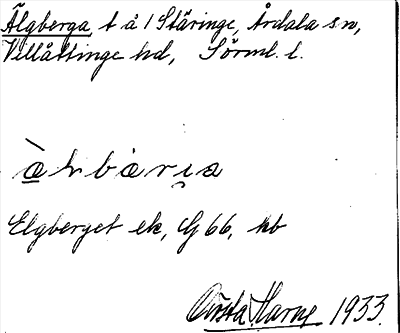 Älgberga, t å 1 Stäringe, Årdala sn,
Villåttinge hd, Sörml. l.
Elgberget ek, G 66, kb
Gösta Harne 1933.